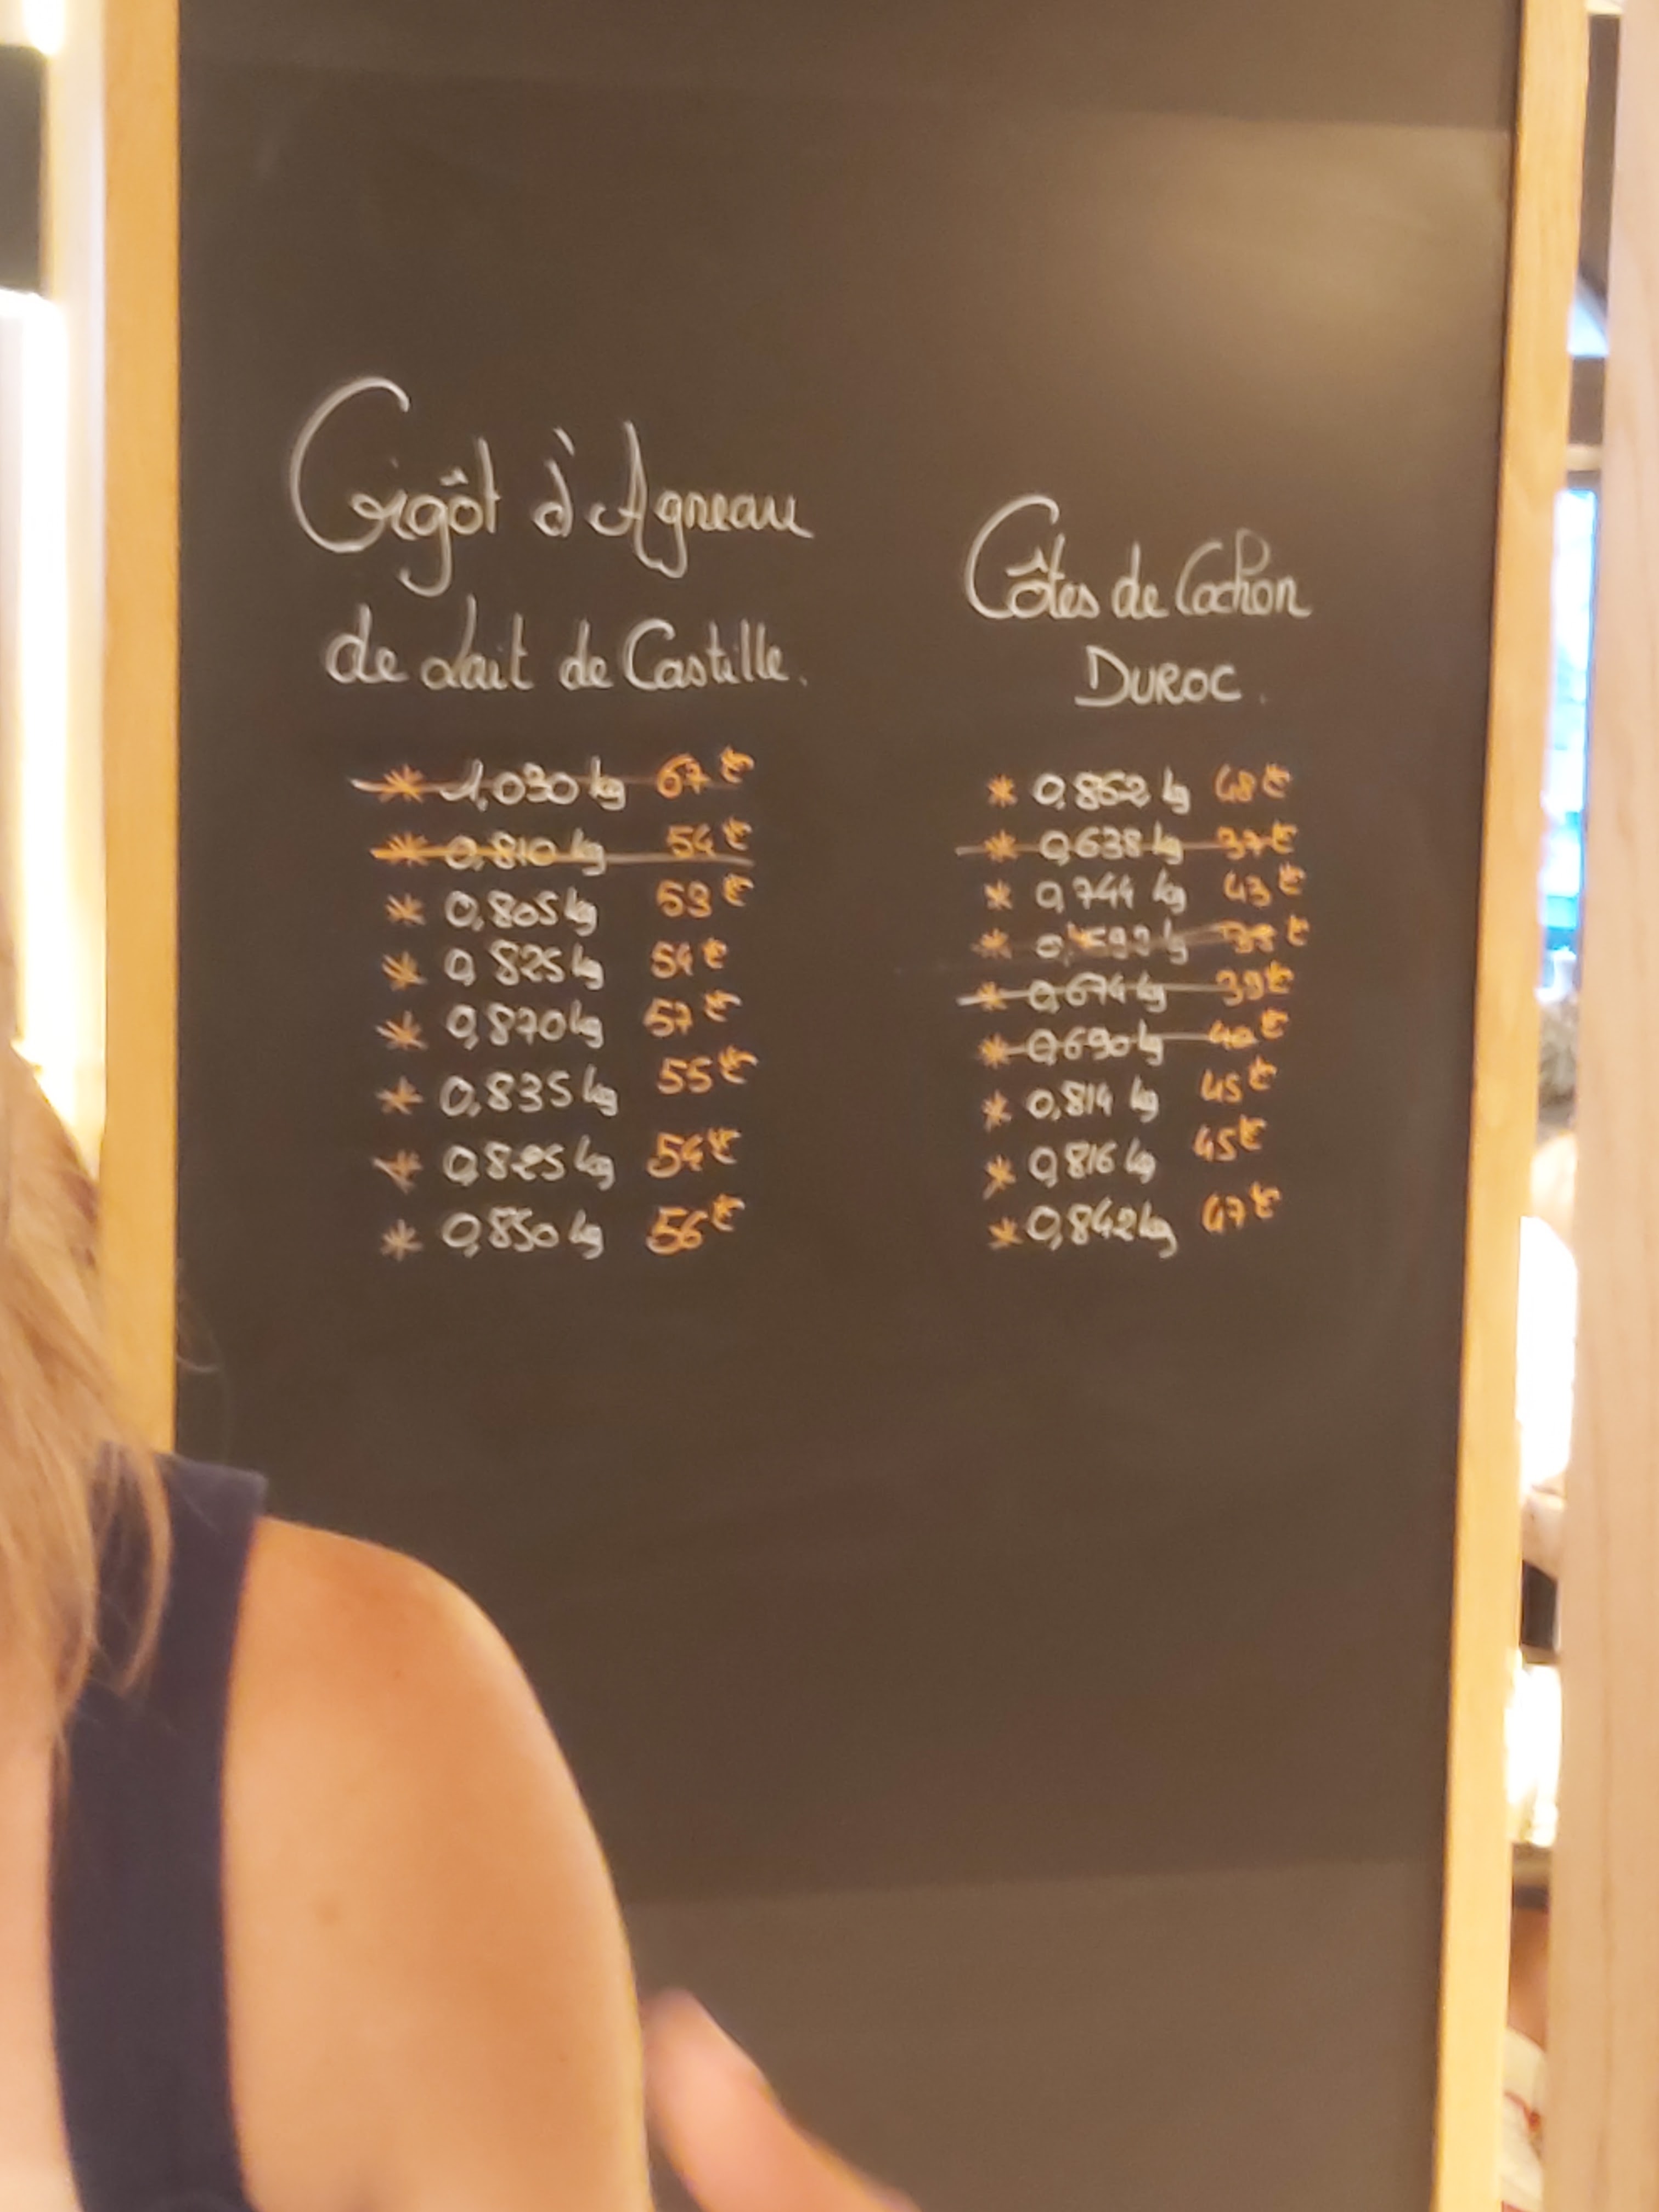 Gigôt d'Agneau
de Lait de Castille.
* 1,030 kg 67 €
* 0,810 kg 54 €
* 0,805 kg 53 €
* 0,825 kg 54 €
* 0,870 kg 57 €
* 0,835 kg 55 €
* 0,825 kg 54 €
* 0,850 kg 56 €
Côtes de Cochon
DUROC.
* 0,852 kg 48 €
* 0,638 kg 37 €
* 0,744 kg 43 €
* 0,674 kg 39 €
* 0,690 kg 40 €
* 0,814 kg 45 €
* 0,816 kg 45 €
* 0,842 kg 47 €